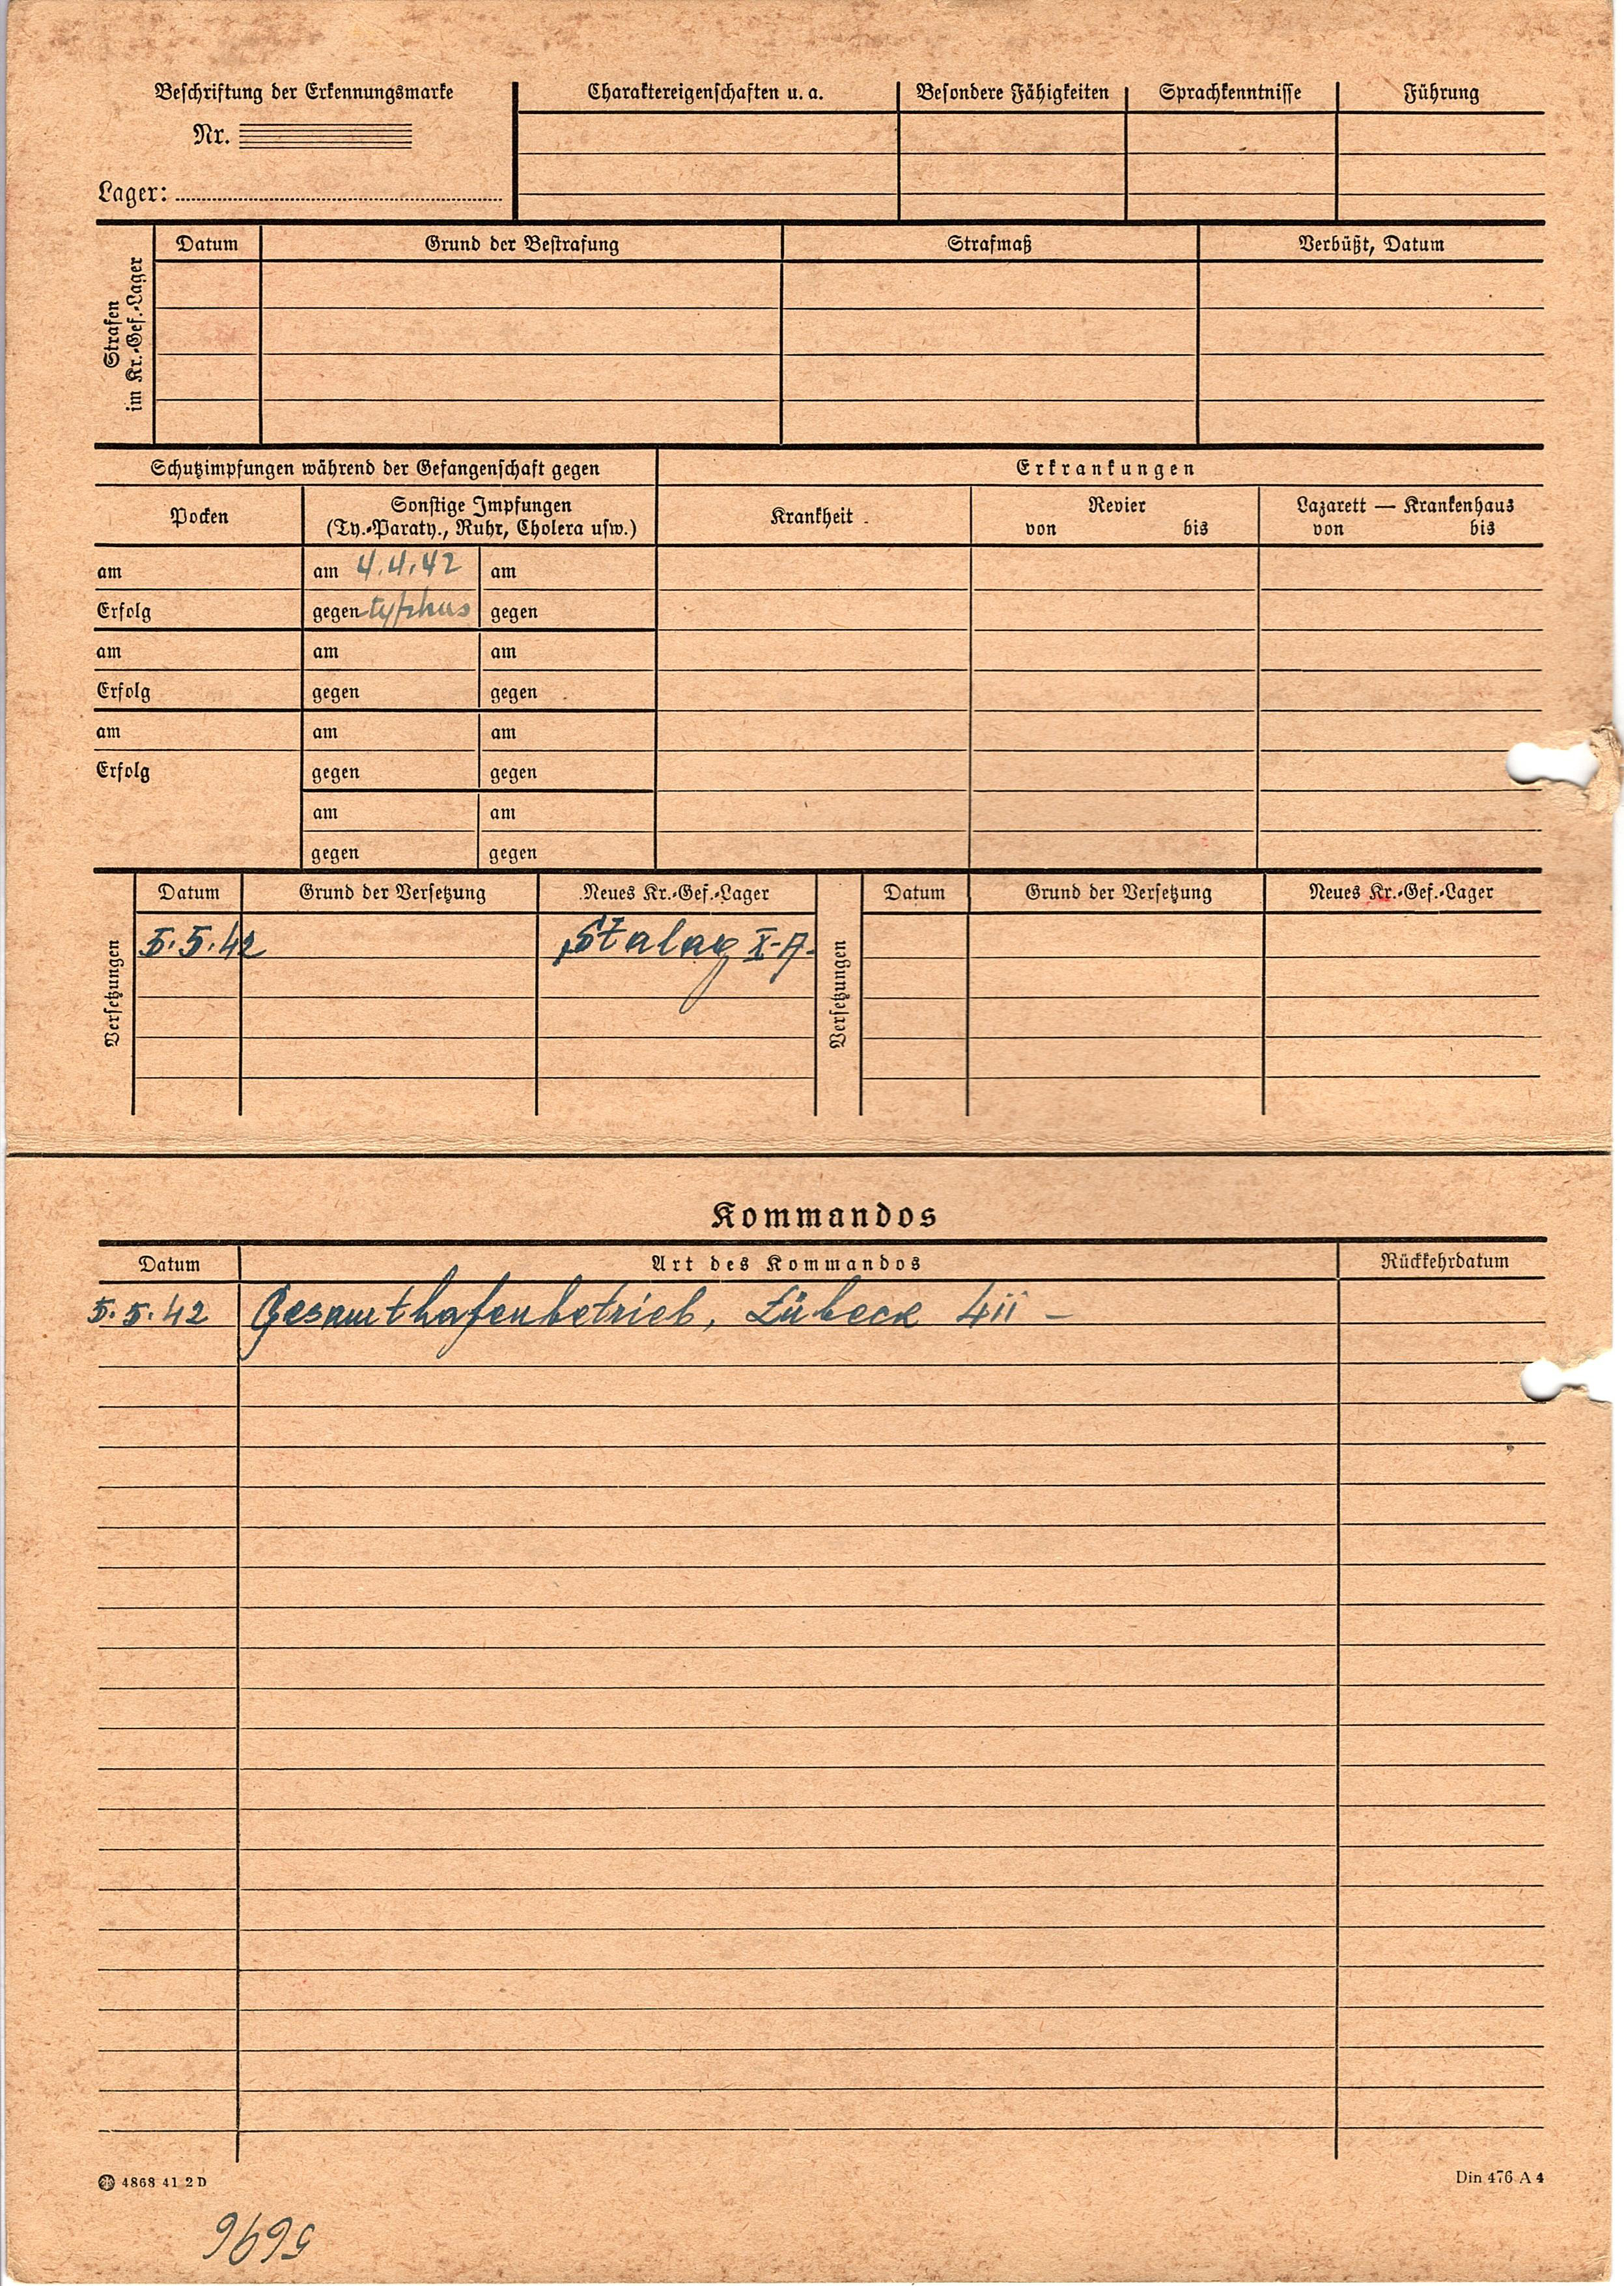 Beschriftung der Erkennungsmarke
Nr.
Lager:
Charaktereigenschaften u. a. Besondere Fähigkeiten Sprachkenntnisse Führung
Strafen
im Kr.-Gef.-Lager
Datum Grund der Bestrafung Strafmaß Verbüßt, Datum
Schutzimpfungen während der Gefangenschaft gegen
Pocken Sonstige Impfungen
(Ty.-Paraty., Ruhr, Cholera usw.)
am am 4.4.42 am
Erfolg gegen typhus gegen
am am am
Erfolg gegen gegen
am am am
Erfolg gegen gegen
am am
gegen gegen
Erkrankungen
Krankheit Revier Lazarett — Krankenhaus
von bis von bis
Versetzungen
Datum Grund der Versetzung Neues Kr.-Gef.-Lager
5.5.42 Stalag X-A-
Versetzungen
Datum Grund der Versetzung Neues Kr.-Gef.-Lager
Kommandos
Datum Art des Kommandos Rückkehrdatum
5.5.42 Gesamthafenbetrieb, Lübeck 4ii –
4868 41 2 D
Din 476 A 4
5696